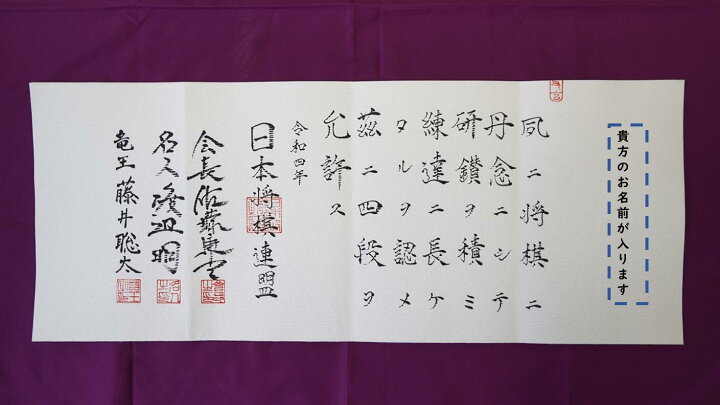 貴方のお名前が入ります
夙ニ将棋ニ
丹念ニシテ
研鑽ヲ積ミ
練達ニ長ケ
タルヲ認メ
茲ニ四段ヲ
允許ス
令和四年
日本将棋連盟
会長佐藤康光
名人渡辺明
竜王藤井聡太